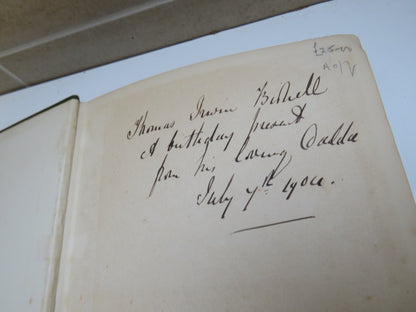 £25.00
A0/V
Thomas Irwin Bidwell
A birthday present
from his loving Dadda
July 7th 1904.